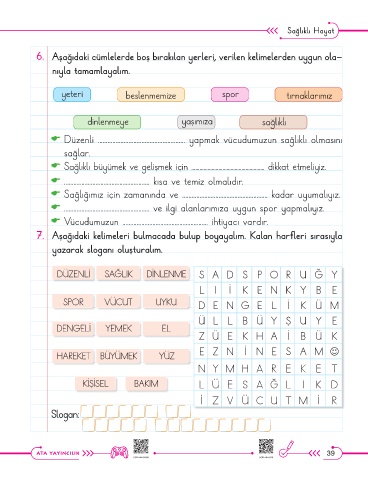 Sağlıklı Hayat
6. Aşağıdaki cümlelerde boş bırakılan yerleri, verilen kelimelerden uygun ola-
nıyla tamamlayalım.
yeteri beslenmemize spor tırnaklarımız
dinlenmeye yaşımıza sağlıklı
Düzenli ........ yapmak vücudumuzun sağlıklı olmasını
sağlar.
Sağlıklı büyümek ve gelişmek için ........ dikkat etmeliyiz.
........ kısa ve temiz olmalıdır.
Sağlığımız için zamanında ve ........ kadar uyumalıyız.
........ ve ilgi alanlarımıza uygun spor yapmalıyız.
Vücudumuzun ........ ihtiyacı vardır.
7. Aşağıdaki kelimeleri bulmacada bulup boyayalım. Kalan harfleri sırasıyla
yazarak sloganı oluşturalım.
DÜZENLİ SAĞLIK DİNLENME
SPOR VÜCUT UYKU
DENGELİ YEMEK EL
HAREKET BÜYÜMEK YÜZ
KİŞİSEL BAKIM
S A D S P O R U Ğ Y
L I İ K E N K Y B E
D E N G E L İ K Ü M
Ü L L B Ü Y Ş U Y E
Z Ü E K H A İ B Ü K
E Z N İ N E S A M ☺
N Y M H A R E K E T
L Ü E S A Ğ L I K D
İ Z V Ü C U T M İ R
Slogan:
ATA YAYINCILIK
39